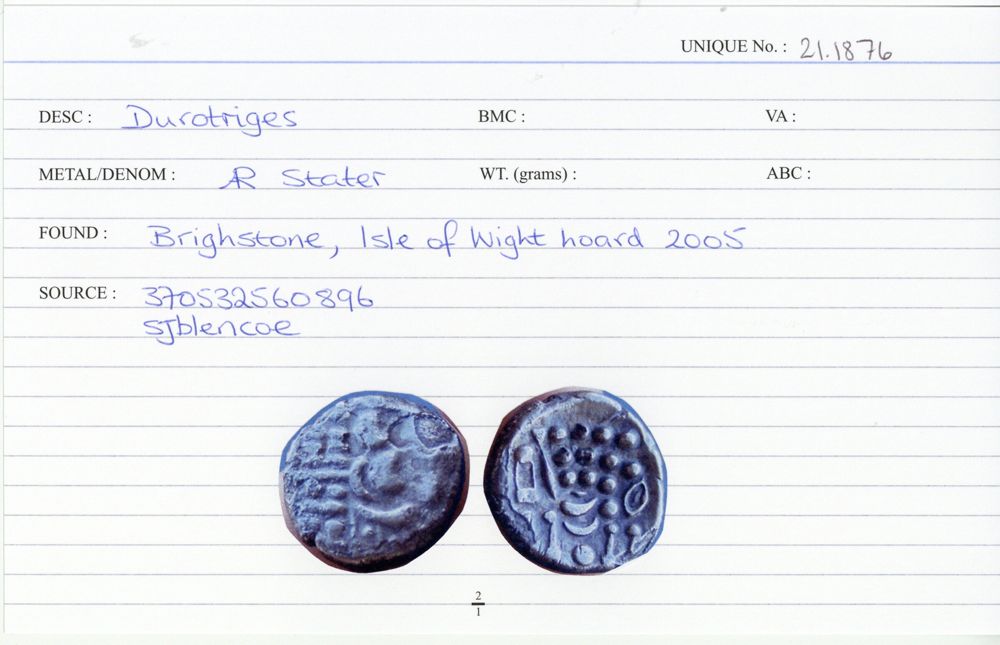 UNIQUE No. : 21.1876
DESC : Durotriges BMC : VA :
METAL/DENOM : AR Stater WT. (grams) : ABC :
FOUND : Brighstone, Isle of Wight hoard 2005
SOURCE : 370532560896
sjblencoe
2
1